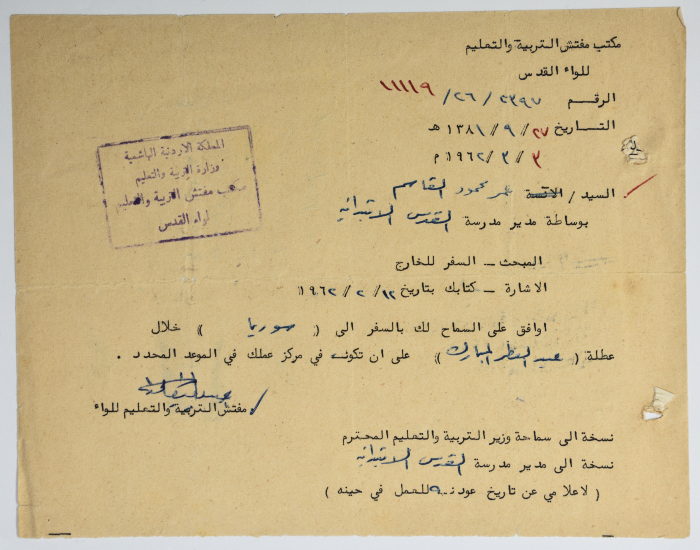 مكتب مفتش التربية والتعليم
للواء القدس
الرقم ٢٣٩٧ / ٢٦ / ١١١١٩
التاريخ ٢٧ / ٩ / ١٣٨١ هـ
٣ / ٣ / ١٩٦٢ م
المملكة الاردنية الهاشمية
وزارة التربية والتعليم
مكتب مفتش التربية والتعليم
لواء القدس
السيد / الآنسة عمر محمود القاسم
بوساطة مدير مدرسة القدس الابتدائية
المبحث ـ السفر للخارج
الاشارة ـ كتابك بتاريخ ١٢ / ٢ / ١٩٦٢
اوافق على السماح لك بالسفر الى (( سوريا )) خلال
عطلة (( عيد الفطر المبارك )) على ان تكون في مركز عملك في الموعد المحدد .
مفتش التربية والتعليم للواء
نسخة الى سماحة وزير التربية والتعليم المحترم
نسخة الى مدير مدرسة القدس الابتدائية
( لاعلامي عن تاريخ عودته للعمل في حينه )